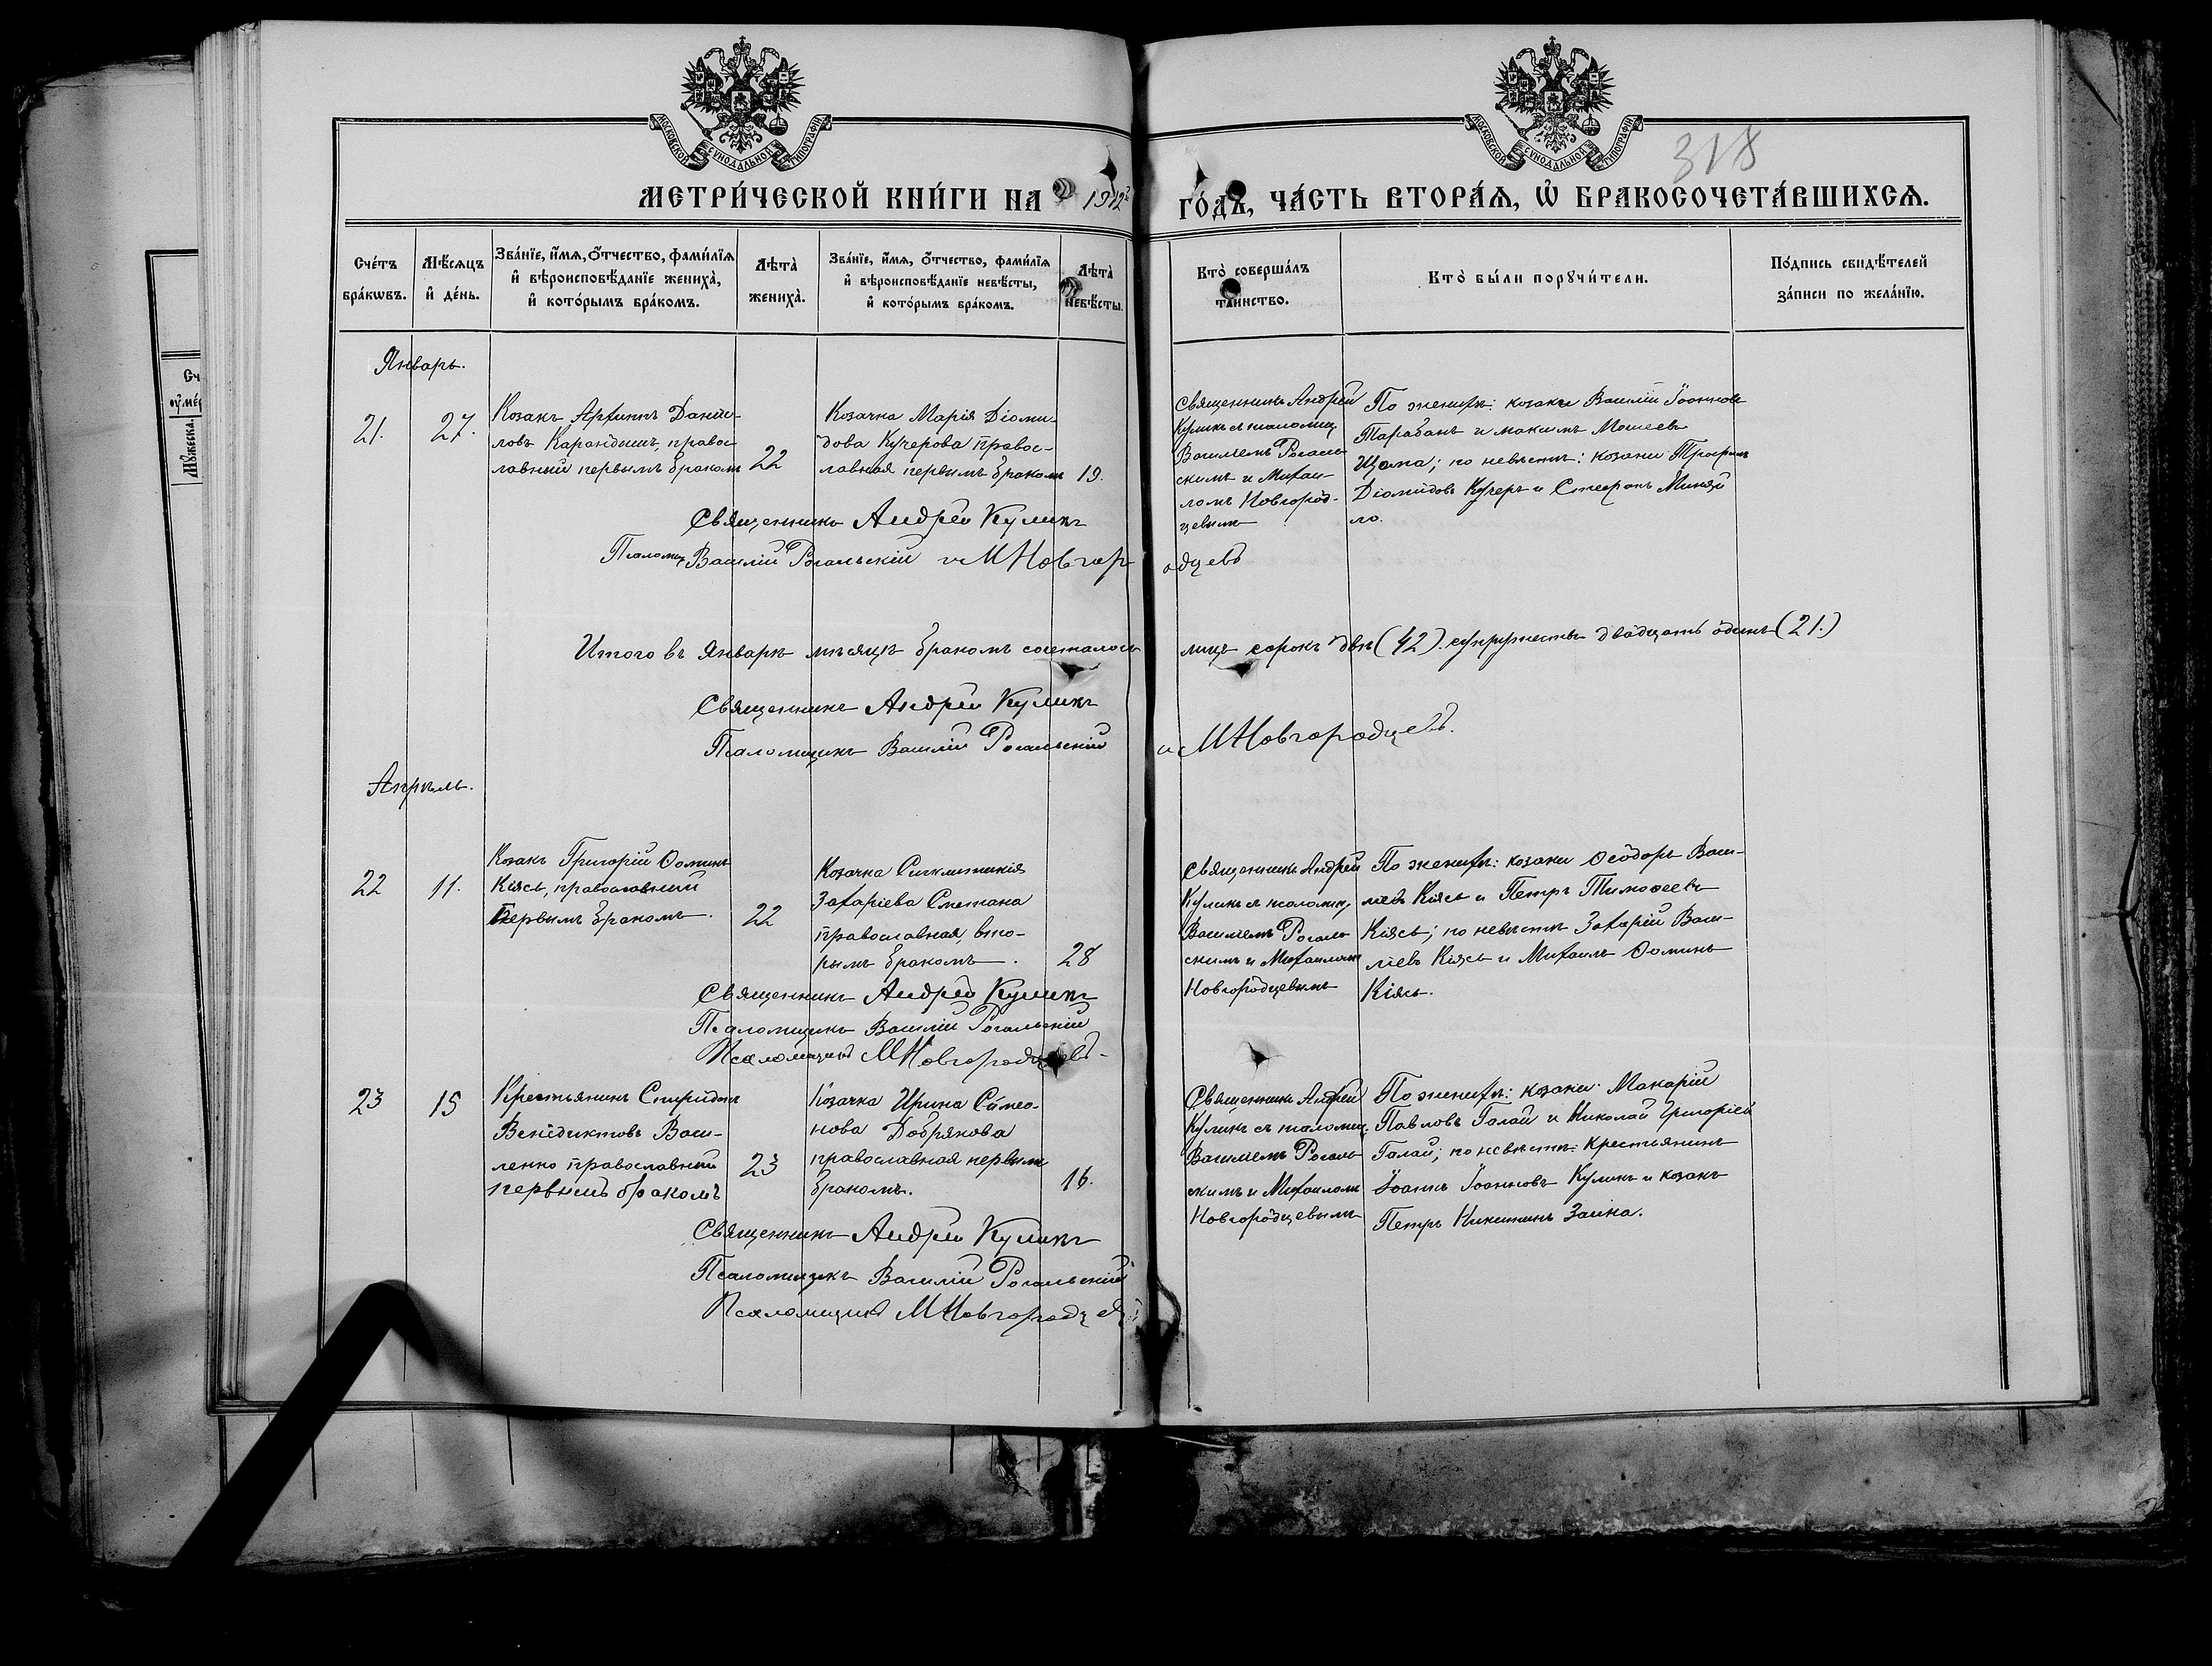 МОСКОВСКОЙ СѴНОДАЛЬНОЙ ТИПОГРАФІИ
МОСКОВСКОЙ СѴНОДАЛЬНОЙ ТИПОГРАФІИ
318
МЕТРИ́ЧЕСКОЙ КНИ́ГИ НА 1912 ГО́ДЪ, ЧА́СТЬ ВТОРА́Я, Ѡ БРАКОСОЧЕТА́ВШИХСЯ.
Сче́тъ
бра́кѡвъ.
Мѣ́сяцъ
и҆ де́нь.
Зва́нїе, и҆́мя, ѻ҆́тчество, фами́лїя
и҆ вѣроисповѣ́данїе жениха̀,
и҆ кото́рымъ бра́комъ.
Лѣта̀
жениха̀.
Зва́нїе, и҆́мя, ѻ҆́тчество, фами́лїя
и҆ вѣроисповѣ́данїе невѣ́сты,
и҆ кото́рымъ бра́комъ.
Лѣта̀
невѣ́сты.
Кто̀ соверша́лъ
та́инство.
Кто̀ бы́ли порꙋчи́тели.
По́дпись свидѣ́телей
за́писи по жела́нїю.
Январь.
21.
27.
Козакъ Архиппъ Дани-
ловъ Карандишъ, правос-
лавный первымъ бракомъ
22
Козачка Марія Діоми-
дова Кучерова правос-
лавная первымъ бракомъ
19.
Священникъ Андрей
Куликъ съ псаломщ.
Василіемъ Рогаль-
скимъ и Михаи-
ломъ Новгород-
цевымъ
По женихѣ: козаки Василій Іоанновъ
Тарабанъ и Максимъ Моисеевъ
по невѣстѣ: козаки Трофимъ
Діомидовъ Кучеръ и Стефанъ Миняй
ло.
Священникъ Андрей Куликъ
Псаломщ. Василій Рогальскій и М Новгородцевъ
Итого въ Январѣ мѣсяцѣ бракомъ сочеталось лицъ сорокъ двѣ (42). супружествъ двадцать одинъ (21.)
Священникъ Андрей Куликъ
Псаломщикъ Василій Рогальскій и М Новгородцевъ.
Апрѣль.
22
11.
Козакъ Григорій Ѳоминъ
Кіясь, православный
первымъ бракомъ.
22
Козачка Синклитикія
Захаріева Сметана
православная, вто-
рымъ бракомъ.
28
Священникъ Андрей
Куликъ съ псаломщ.
Василіемъ Рогаль-
скимъ и Михаиломъ
Новгородцевымъ
По женихѣ: козаки Ѳеодоръ Васи-
ліевъ Кіясь и Петръ Тимоѳеевъ
Кіясь; по невѣстѣ Захарій Васи-
ліевъ Кіясь и Михаилъ Ѳоминъ
Кіясь.
Священникъ Андрей Куликъ
Псаломщикъ Василій Рогальскій
Псаломщикъ М Новгородцевъ
23
15
Крестьянинъ Спиридонъ
Венідиктовъ Васи-
ленко православный
первымъ бракомъ
23
Козачка Ирина Симео-
нова Добрякова
православная первымъ
бракомъ.
16.
Священникъ Андрей
Куликъ съ псаломщ.
Василіемъ Рогаль-
скимъ и Михаиломъ
Новгородцевымъ
По женихѣ: козаки: Макарій
Павловъ Галай и Николай Григоріевъ
Галай; по невѣстѣ: Крестьянинъ
Іоаннъ Іоанновъ Куликъ и козакъ
Петръ Никитинъ Заика.
Священникъ Андрей Куликъ
Псаломщикъ Василій Рогальскій
Псаломщикъ М Новгородцевъ